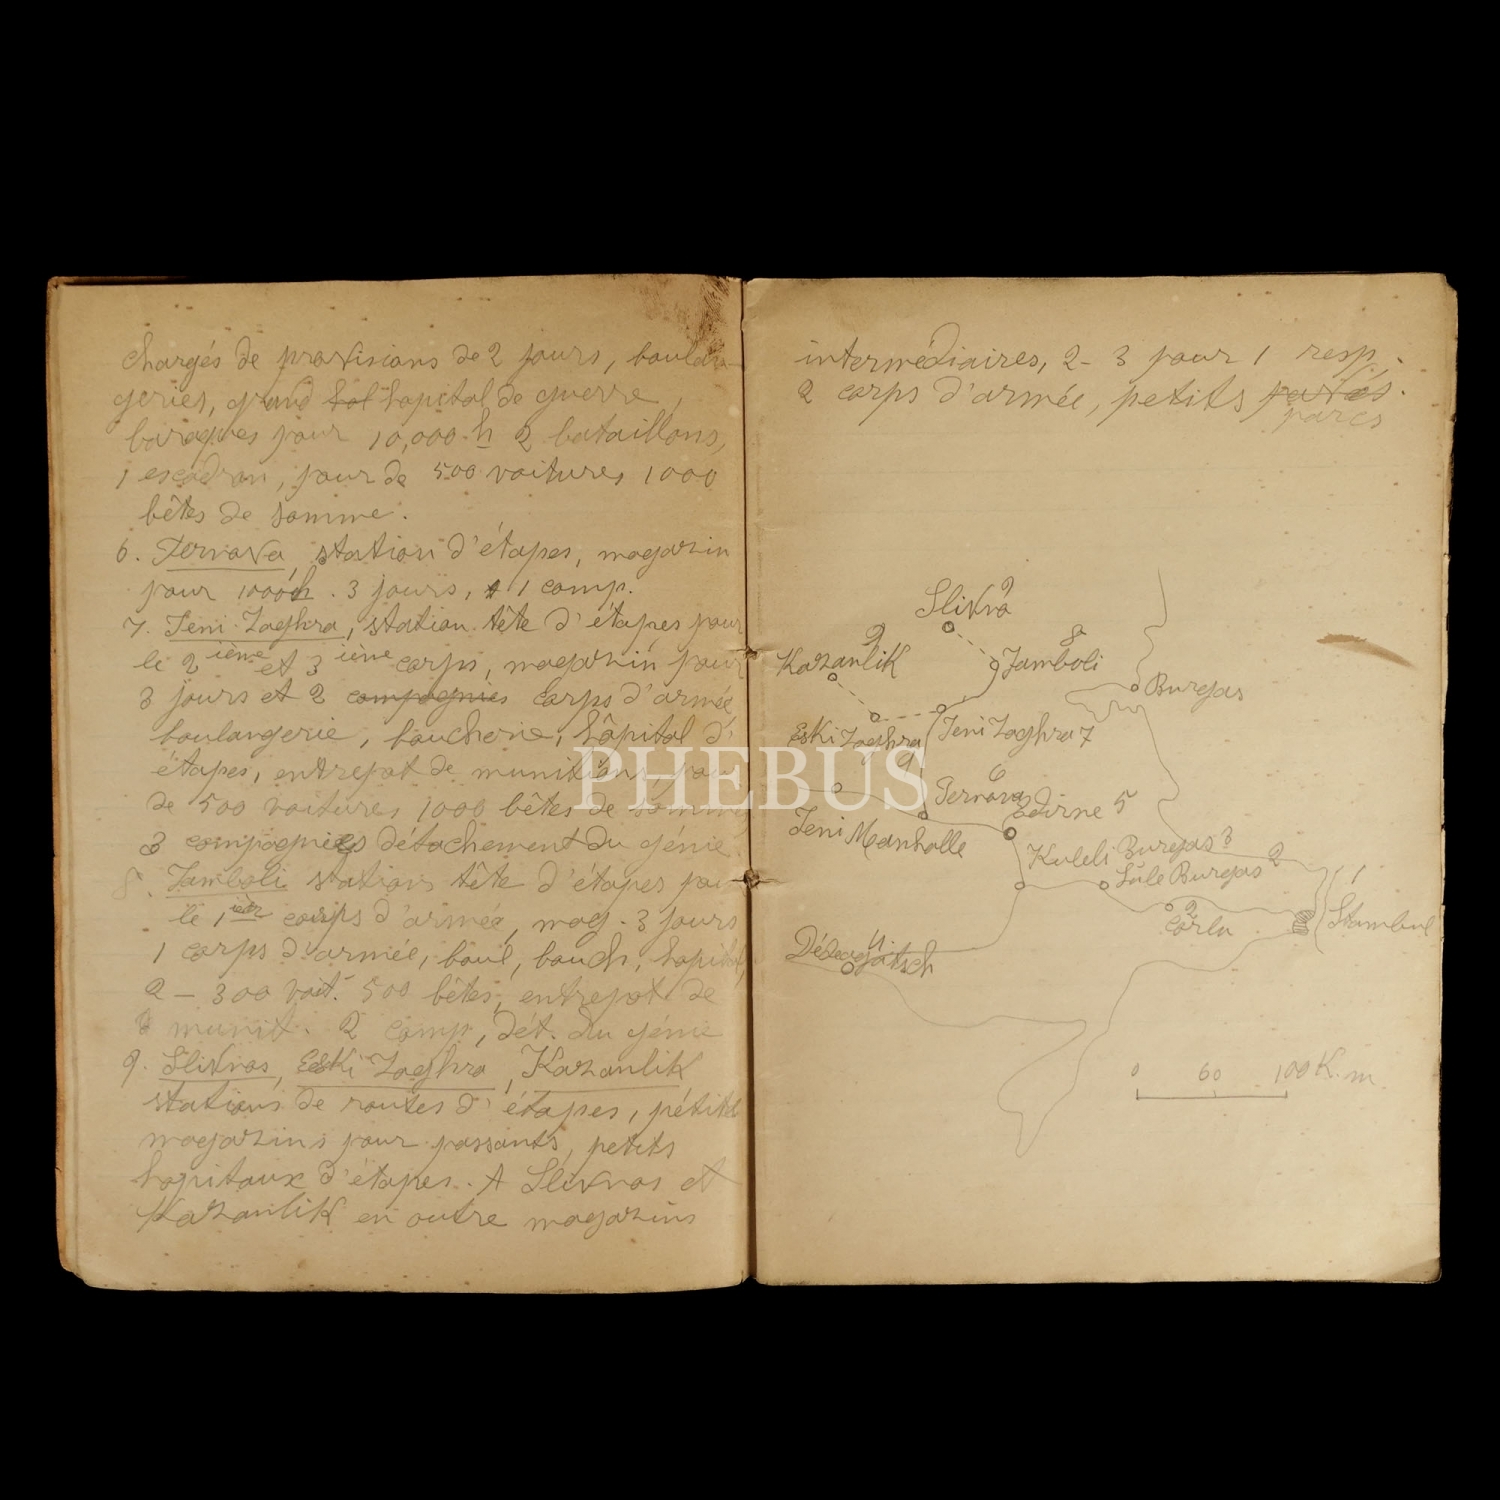 chargés de provisions de 2 jours, boulan-
geries, grand hol hopital de guerre,
baraques pour 10,000 h 2 bataillons,
1 escadron, pour de 500 voitures 1000
bêtes de somme.
6. Ternova, station d'étapes, magazin
pour 1000 h. 3 jours, 1 comp.
7. Jeni Zaghra, station tête d'étapes pour
le 2 ième et 3 ième corps, magazin pour
3 jours et 2 compagnies corps d'armée
boulangerie, boucherie, hôpital d'
étapes, entrepot de munitions, pour
de 500 voitures 1000 bêtes de somme
3 compagnies détachement du génie
8. Jamboli station tête d'étapes pour
le 1 ièr corps d'armée, mag. 3 jours
1 corps d'armée, boul, bouch, hopital,
2 – 300 voit. 500 bêtes, entrepot de
munit. 2 comp, dét. du génie
9. Slivnos, Eski Zaghra, Kazanlik
stations de routes d'étapes, pétits
magazins pour passants, petits
hopitaux d'étapes. A Slivnos et
Kazanlik en outre magazins
intermédiaires, 2-3 pour 1 resp.
2 corps d'armée, petits
parcs
9
Slivno
9
Kazanlik
8
Jamboli
Burgas
Eski Zaghra
9
Jeni Zaghra 7
6
Ternova
Edirne 5
Jeni Mahalle
Kuleli Burgas 3
Lüle Burgas 2
2
Corlu
1
Stambul
4
Dédeagatsch
0 60 100 K.m.
PHEBUS